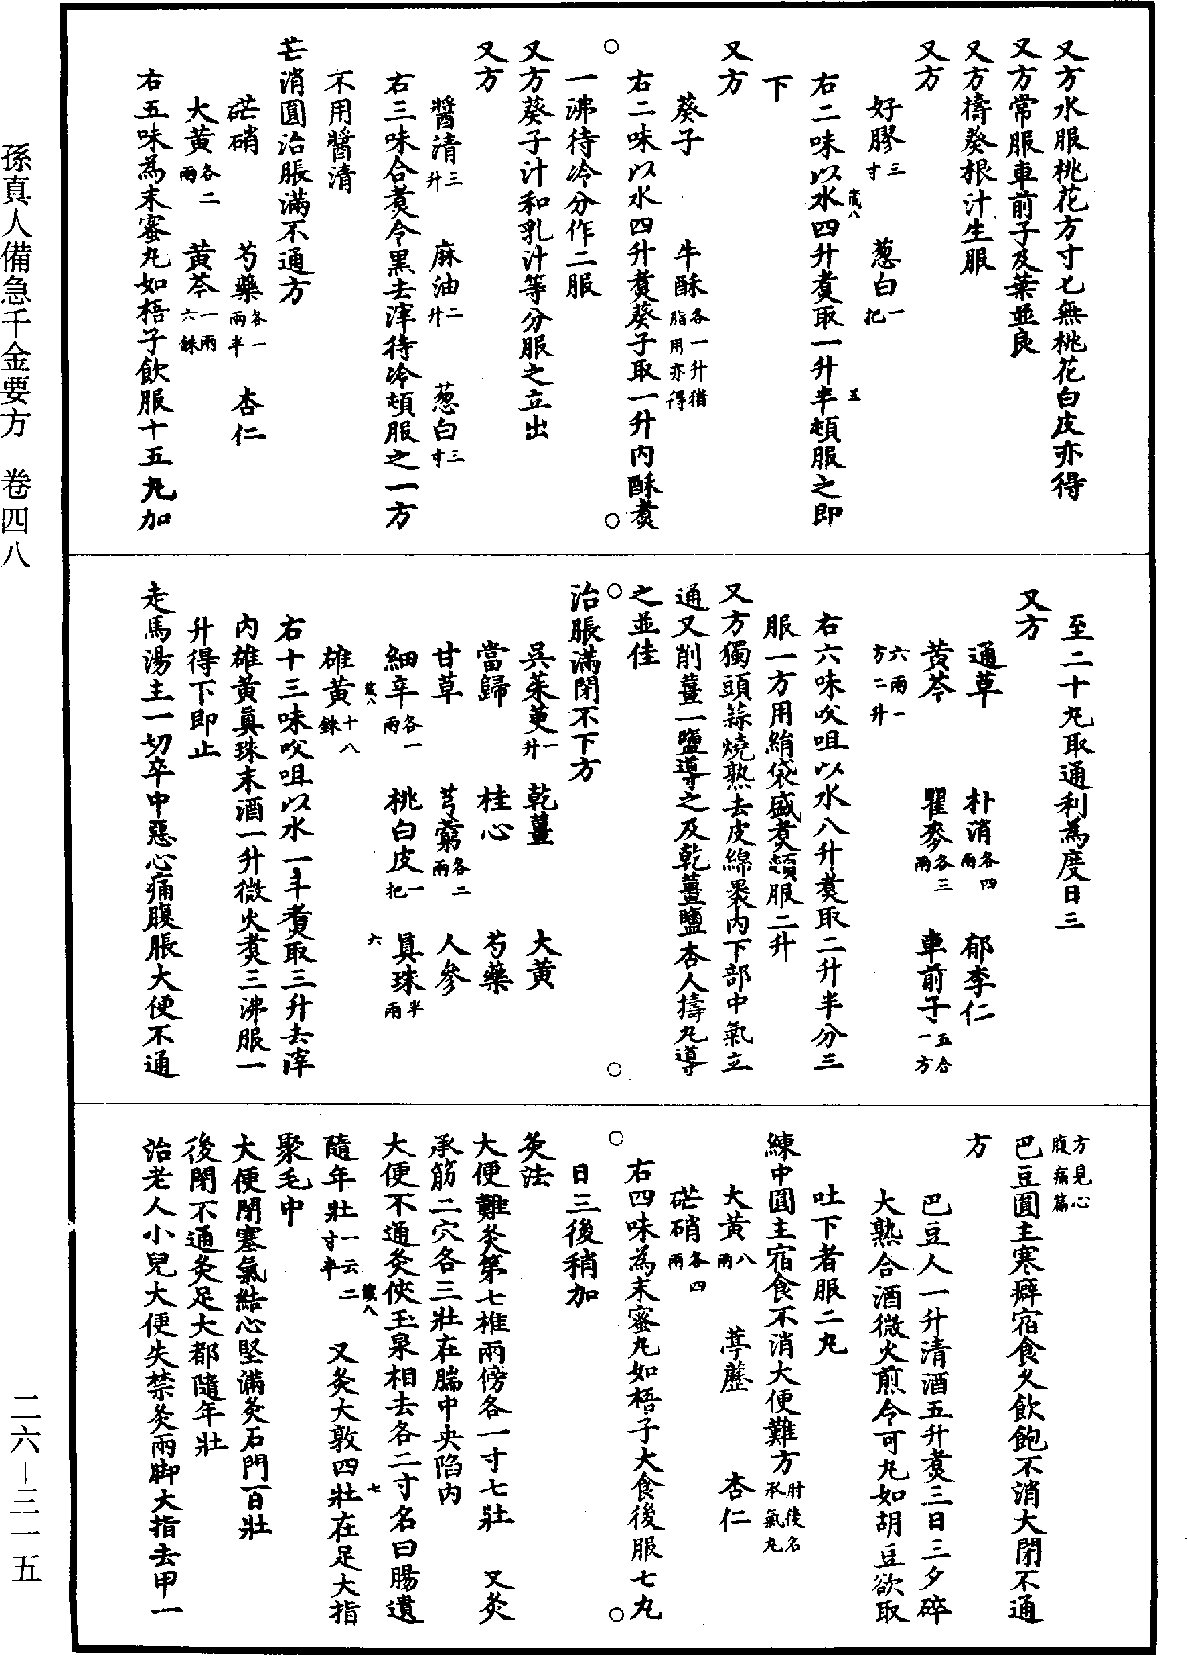 又方水服桃花方寸匕無桃花白皮亦得
又方常服車前子及葉並良
又方擣葵根汁生服
又方
好膠三寸　葱白一把
右二味以水四升煑取一升半頓服之即
下
咸八　五
又方
葵子　牛酥各一升猪脂用亦得
右二味以水四升煑葵子取一升内酥煑
一沸待冷分作二服
又方葵子汁和乳汁等分服之立出
又方
醬清三升　麻油二升　葱白三寸
右三味合煑令黑去滓待冷頓服之一方
不用醬清
芒消圓治脹滿不通方
芒硝　芍藥各一兩半　杏仁
大黄各二兩　黄芩一兩六銖
右五味為末蜜丸如梧子飲服十五丸加
至二十丸取通利為度日三
又方
通草　朴消各四兩　郁李仁
黄芩　瞿麥各三兩　車前子五合一方
六兩一方二升
右六味㕮咀以水八升煑取二升半分三
服一方用絹袋盛煑頓服二升
又方獨頭蒜燒熟去皮綿裹内下部中氣立
通又削薑一鹽導之及乾薑鹽杏人擣丸導
之並佳
治脹滿閉不下方
吳茱萸一升　乾薑　大黄
當歸　桂心　芍藥
甘草　芎藭各二兩　人參
細辛各一兩　桃白皮一把　真珠半兩
雄黄十八銖
咸八　六
右十三味㕮咀以水一斗煑取三升去滓
内雄黄眞珠末酒一升微火煑三沸服一
升得下即止
走馬湯主一切卒中惡心痛腹脹大便不通
方見心腹痛篇
巴豆圓主寒癖宿食久飲飽不消大閉不通
方
巴豆人一升清酒五升煑三日三夕碎
大熟合酒微火煎令可丸如胡豆欲取
吐下者服二丸
練中圓主宿食不消大便難方肘後名承氣丸
大黄八兩　葶藶　杏仁
芒硝各四兩
右四味為末蜜丸如梧子大食後服七丸
日三後稍加
灸法
大便難灸第七椎兩傍各一寸七壯　又灸
承筋二穴各三壯在腨中央陷内
大便不通灸俠玉泉相去各二寸名曰腸遺
隨年壯一云二寸半　又灸大敦四壯在足大指
咸八　七
聚毛中
大便閉塞氣結心堅滿灸石門百壯
後閉不通灸足大都隨年壯
治老人小兒大便失禁灸兩脚大指去甲一
孫真人備急千金要方　卷四八
二六—三一五